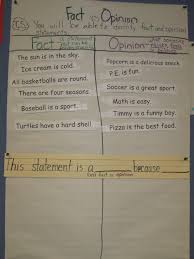 Fact vs Opinion
You will be able to identify fact and opinion
statements.
Fact
Opinion
The sun is in the sky.
Ice cream is cold.
All basketballs are round.
There are four seasons.
Baseball is a sport.
Turtles have a hard shell.
Popcorn is a delicious snack.
P.E. is fun.
Soccer is a great sport.
Math is easy.
Timmy is a funny boy.
Pizza is the best food.
This statement is a ____ because ____.
fact or opinion